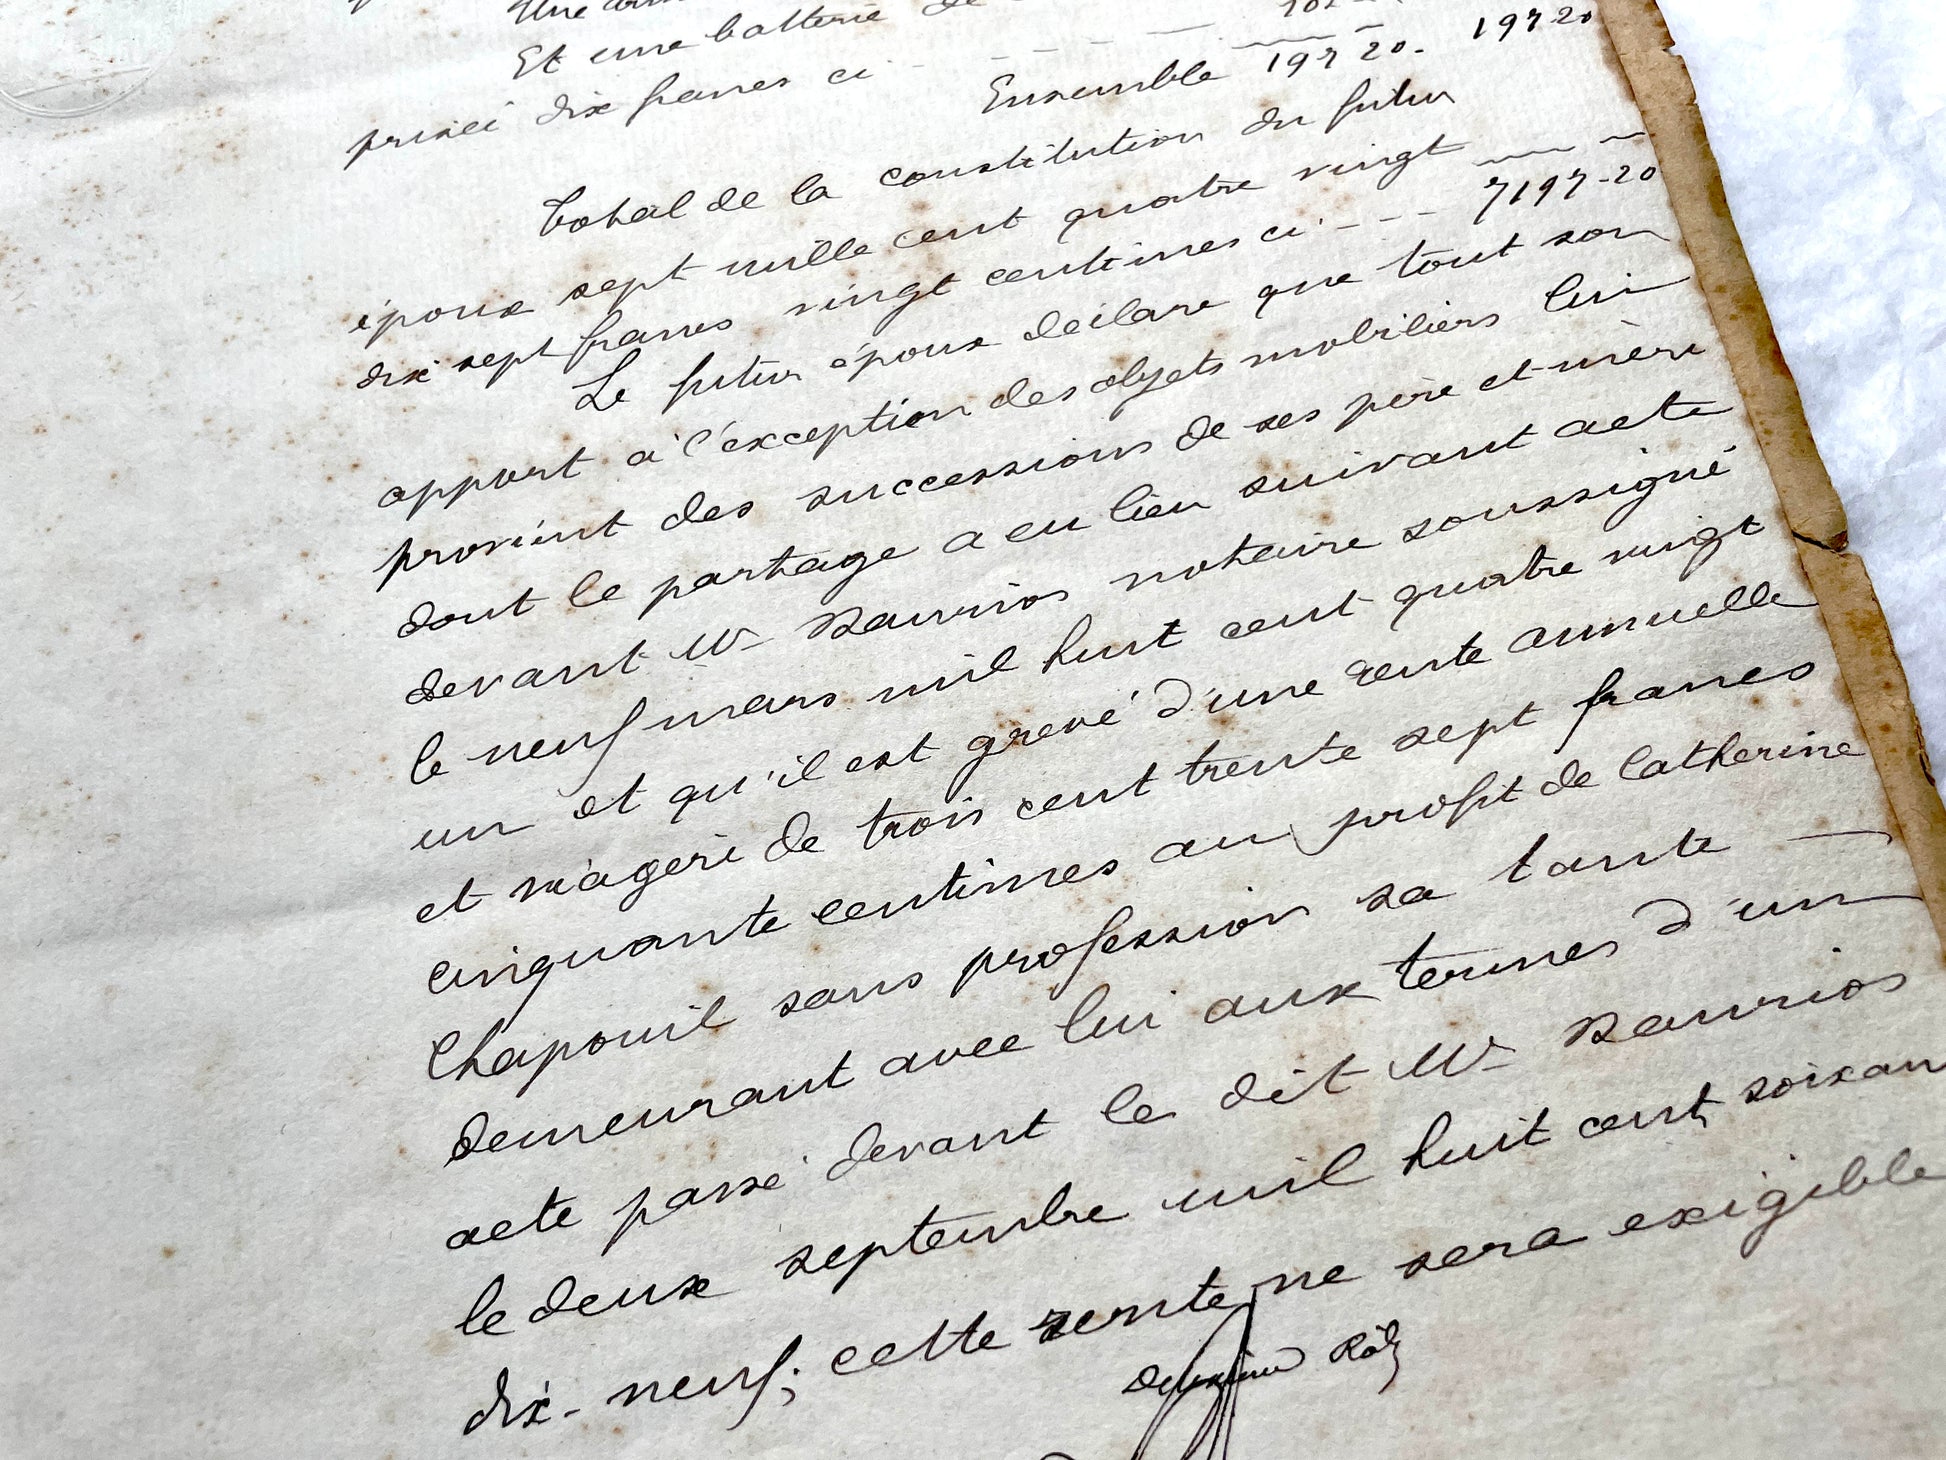 Une
Et une batterie de
prisée dix francs ci 10 "
Ensemble 197 20. 197 20
Total de la constitution du futur
époux sept mille cent quatre vingt
dix sept francs vingt centimes ci - - - 7197-20
Le futur époux déclare que tout son
apport à l'exception des objets mobiliers lui
provient des successions de ses père et mère
dont le partage a eu lieu suivant acte
devant Me notaire soussigné
le neuf mars mil huit cent quatre vingt
un et qu'il est grevé d'une rente annuelle
et viagère de trois cent trente sept francs
cinquante centimes au profit de Catherine
Chapouil sans profession sa tante
demeurant avec lui aux termes d'un
acte passé devant le dit Me
le deux septembre mil huit cent soixan
dix-neuf; cette rente ne sera exigible